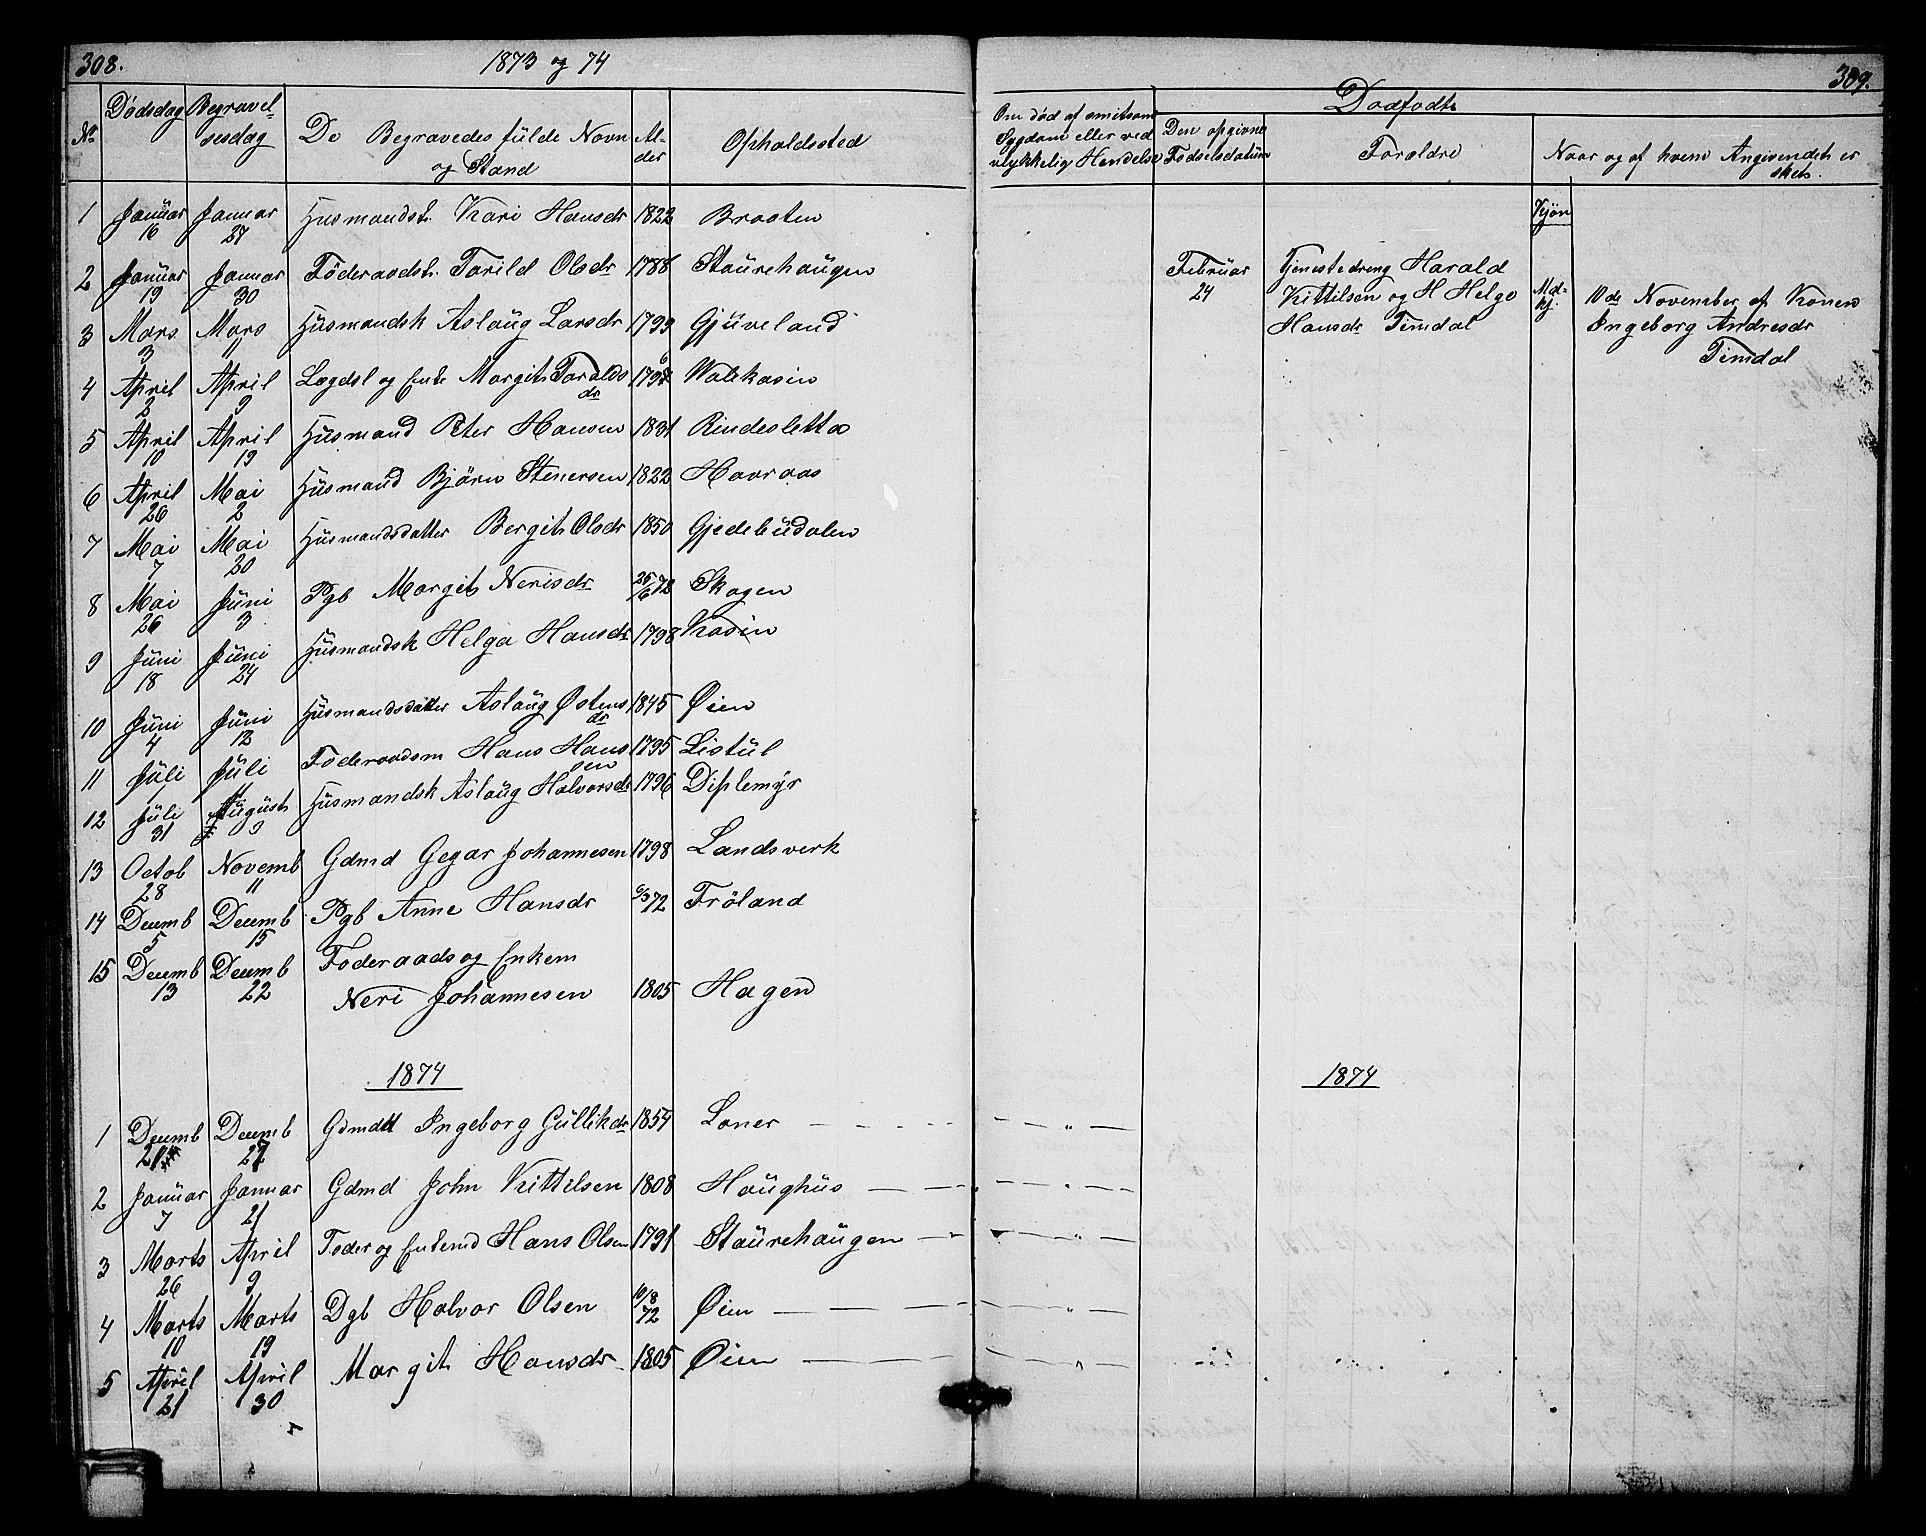 308.
1873 og 74
No Dødsdag Begravelsesdag De Begravedes fulde Navn og Stand Alder Opholdssted
1 Januar 16 Januar 27 Husmandsk. Kari Hansdr 1822 Braaten
2 Januar 19 Januar 30 Föderaadsk. Torild Olsdr 1788 Staurehaugen
3 Mars 3 Mars 11 Husmandsk Aslaug Larsdr 1799 Gjuveland
4 April 2 April 9 Lægdsl og Enke Margit Toraldsdr 1798 6
5 April 10 April 19 Husmand Peter Hansen 1831 Rindesletta
6 April 26 Mai 2 Husmand Björn Stenersen 1822 Haaraas
7 Mai 7 Mai 20 Husmandsdatter Bergit Olsdr 1850 Gjedebudalen
8 Mai 26 Juni 3 Pgb Margit Nerisdr 25/6 72 Skogen
9 Juni 18 Juni 24 Husmandsk Helga Hansdr 1798 Kasin
10 Juni 4 Juni 12 Husmandsdatter Aslaug Østensdr 1845 Øien
11 Juli 1 Juli 11 Föderaadsm Hans Hansen 1795 Listul
12 Juli 31 August 9 Husmandsk Aslaug Halvorsdr 1796 Diplemyr
13 Octob 28 Novemb 11 Gdmd Gegar Johannesen 1798 Landsverk
14 Decemb 5 Decemb 15 Pgb Anne Hansdr 6/3 72 Fröland
15 Decemb 13 Decemb 22 Föderaads og Enkem
Neri Johannesen 1805 Hagen
1874
1 Decemb 21 Decemb 27 Gdmdtt Ingeborg Gullikdr 1854 Loner — " —
2 Januar 7 Januar 21 Gdmd John Kittilsen 1808 Haughus — " —
3 Marts 26 April 9 Föder og Enkemd Hans Olsen 1791 Staurehaugen — " —
4 Marts 10 Marts 19 Dgb Halvor Olsen 10/8 72 Øien — " —
5 April 21 April 30 Margit Hansdr 1805 Øien — " —
309.
Dødfødte
Om død af smitsom Sygdom eller ved ulykkelig Hendelse
Den opgivne Fødselsdatum
Forældre
Naar og af hvem Angivendet er skeet.
Kjøn
Februar 24
Tjenestedreng Harald
Kittilsen og H Helge
Hansdr Timdal
Md-kj.
10de November af Konen
Ingeborg Andresdr
Timdal
1874